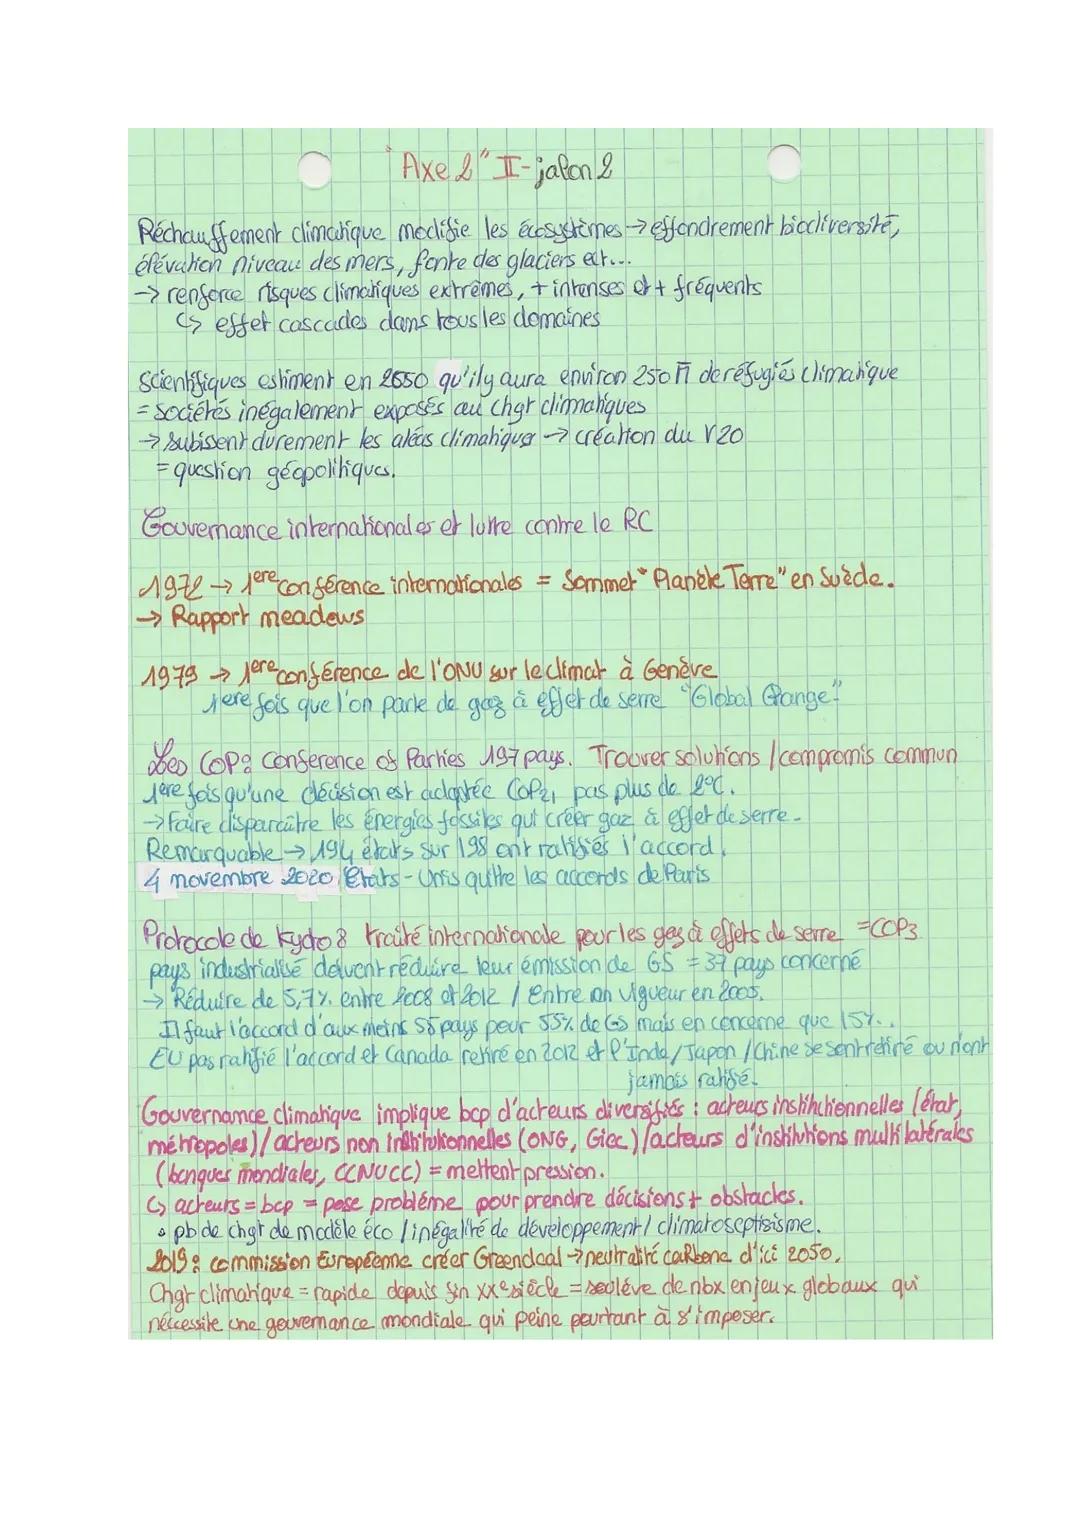 "Axe 2" II- jalon 2
Réchauffement climatique modifie les écosystèmes → effondrement biodiversité,
élévation niveau des mers, fonte des glaciers ect...
→ renforce risques climatiques extrêmes, + intenses et + fréquents
↳ effet cascades dans tous les domaines
Scientifiques estiment en 2050 qu'il y aura environ 250 M de réfugiés climatique
= sociétés inégalement exposés au chgt climatiques
→ subissent durement les aléas climatiques → création du V20
= question géopolitiques.
Gouvernance internationales et lutte contre le RC
1972 → 1ere conférence internationales = Sommet "Planète Terre" en Suède.
→ Rapport meadews
1979 → 1ere conférence de l'ONU sur le climat à Genève
1ere fois que l'on parle de gaz à effet de serre "Global Change"
Les COP : Conference of Parties 197 pays. Trouver solutions / compromis commun
1ere fois qu'une décision est adoptée CoP21 pas plus de 2°C.
→ Faire disparaître les énergies fossiles qui créer gaz à effet de serre.
Remarquable → 194 états sur 198 ont ratifiés l'accord.
4 novembre 2020 États-Unis quitte les accords de Paris
Protocole de Kyoto : traité internationale pour les gaz à effets de serre = COP3
pays industrialisé doivent réduire leur émission de GS = 37 pays concerné
→ Réduire de 5,7% entre 2008 et 2012 / Entre en vigueur en 2005.
Il faut l'accord d'aux moins 55 pays pour 55% de Gs mais en concerne que 15%..
EU pas ratifié l'accord et Canada retiré en 2012 et l'Inde / Japon / Chine se sont retiré ou n'ont
jamais ratifié.
Gouvernance climatique implique bcp d'acteurs diversifiés : acteurs institutionnelles (état,
métropoles) / acteurs non institutionnelles (ONG, Giec) / acteurs d'institutions multilatérales
(banques mondiales, CCNUCC) = mettent pression.
↳ acteurs = bcp = pose problème pour prendre décisions + obstacles.
• pb de chgt de modèle éco / inégalité de développement / climatoseptisisme.
2019 : commission Européenne créer Greendeal → neutralité carbone d'ici 2050.
Chgt climatique = rapide depuis fin XXe siècle = soulève de nbx enjeux globaux qui
nécessite une gouvernance mondiale qui peine pourtant à s'imposer.